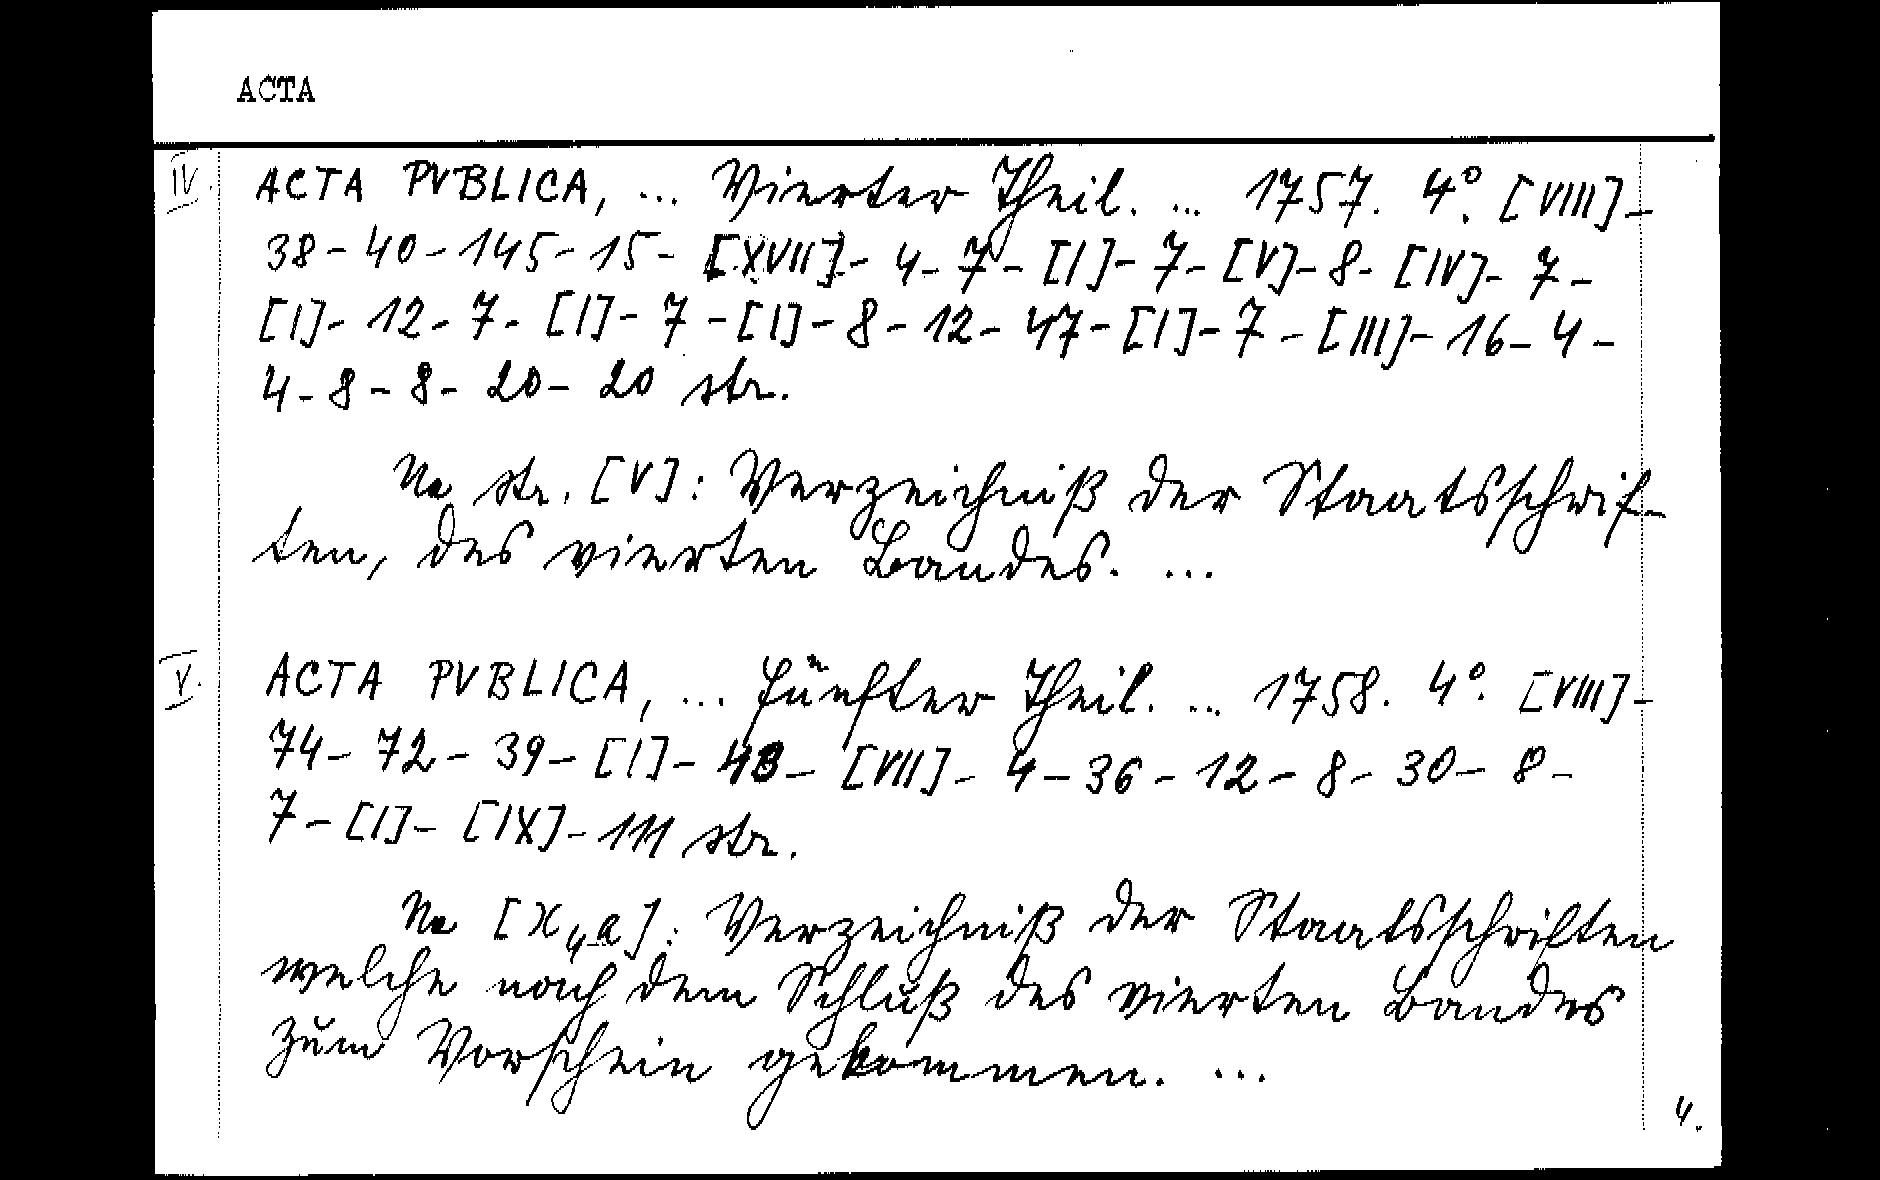 ACTA
IV. ACTA PVBLICA, ... Vierter Theil. ... 1757. 4°. [VIII]-
38-40-145-15-[XVII]-4-7-[I]-7-[V]-8-[IV]-7-
[I]-12-7-[I]-7-[I]-8-12-47-[I]-7-[III]-16-4-
4-8-8-20-20 str.
Na str. [V]: Verzeichniß der Staatsschrif-
ten, des vierten Bandes. ...
V. ACTA PVBLICA, ... fünfter Theil. ... 1758. 4°. [VIII]-
74-72-39-[I]-43-[VII]-4-36-12-8-30-8-
7-[I]-[IX]-111 str.
Na [X,,a]: Verzeichniß der Staatsschriften
welche nach dem Schluß des vierten Bandes
zum Vorschein gekommen. ...
4.